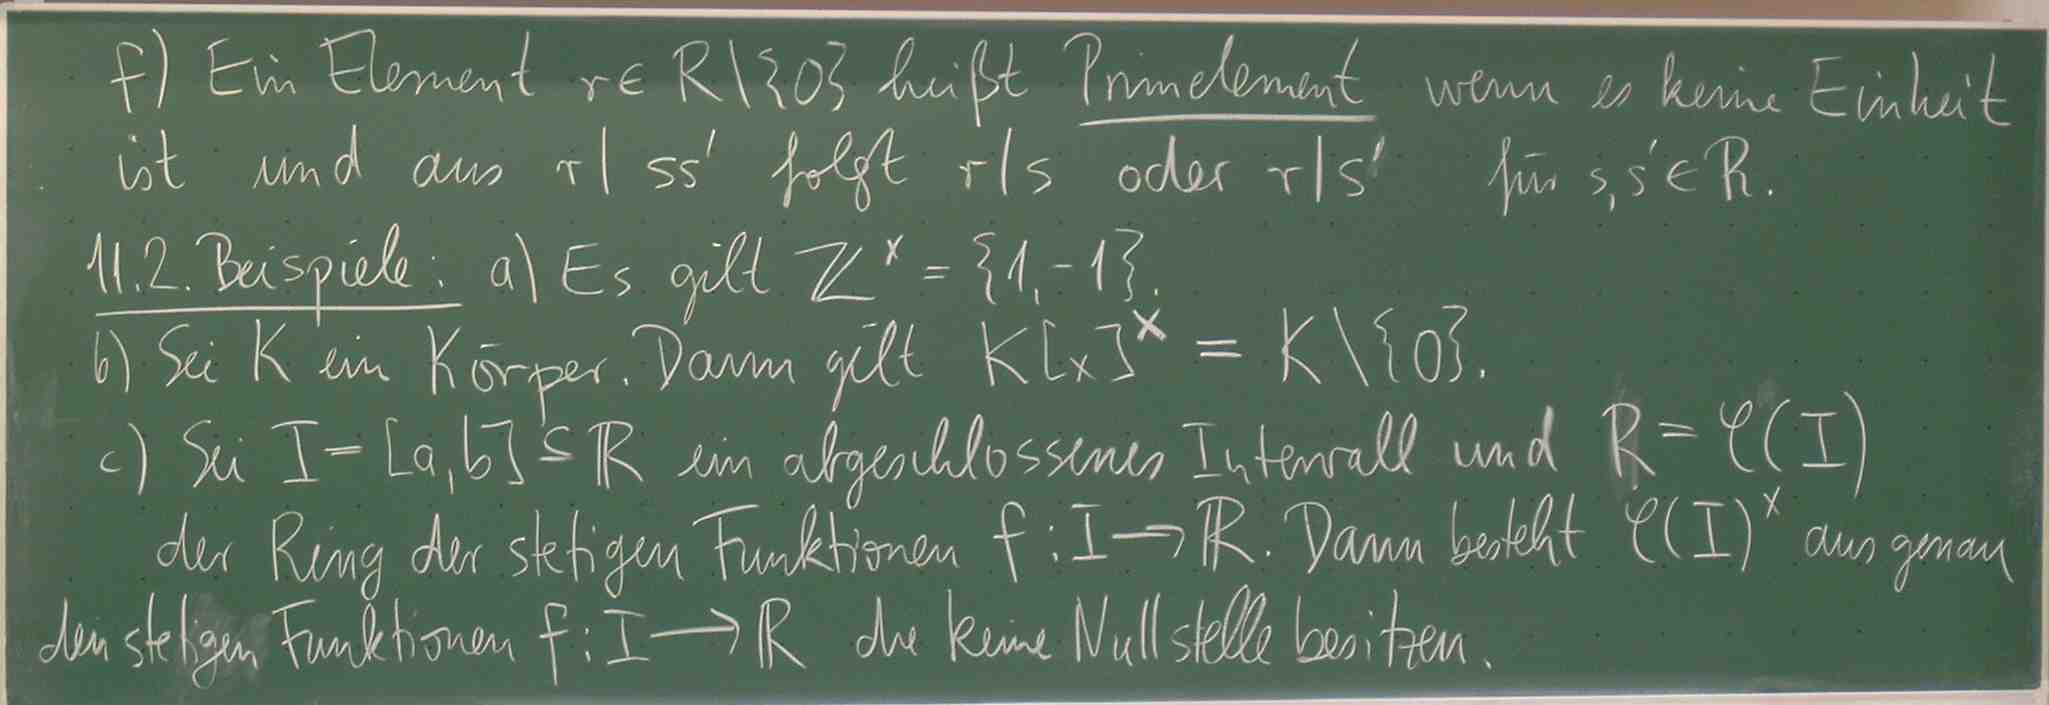 f) Ein Element r∈ R\{0} heißt Primelement wenn es keine Einheit
ist und aus r| ss' folgt r|s oder r|s' für s,s'∈R.
11.2. Beispiele: a) Es gilt ℤ^x = {1,-1}.
b) Sei K ein Körper. Dann gilt K[x]^x = K\{0}.
c) Sei I=[a,b]⊆ℝ ein abgeschlossenes Intervall und R=𝒞(I)
der Ring der stetigen Funktionen f:I→ℝ. Dann besteht 𝒞(I)^x aus genau
den stetigen Funktionen f:I→ℝ die keine Nullstelle besitzen.